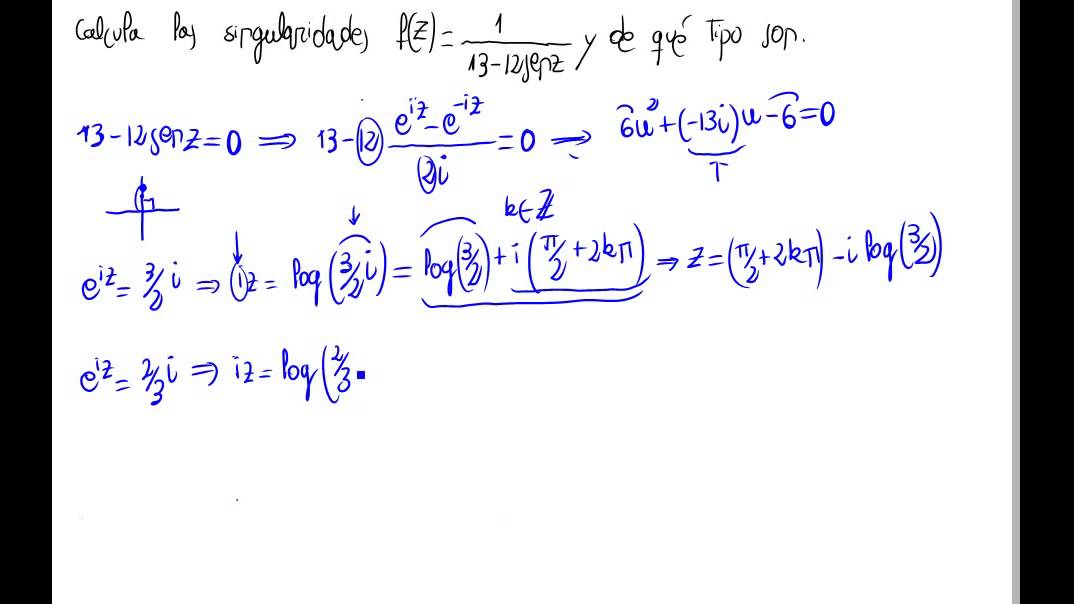 Calcula las singularidades f(z) = 1/(13-12senz) y de qué tipo son.
13-12senz=0 ⇒ 13-12 (e^{iz} - e^{-iz})/(2i) = 0 ⇒ 6u²+(-13i)u-6=0
T
k∈ℤ
e^{iz} = 3/2 i ⇒ iz = log(3/2 i) = log(3/2) + i(π/2 + 2kπ) ⇒ z = (π/2 + 2kπ) - i log(3/2)
e^{iz} = 2/3 i ⇒ iz = log(2/3